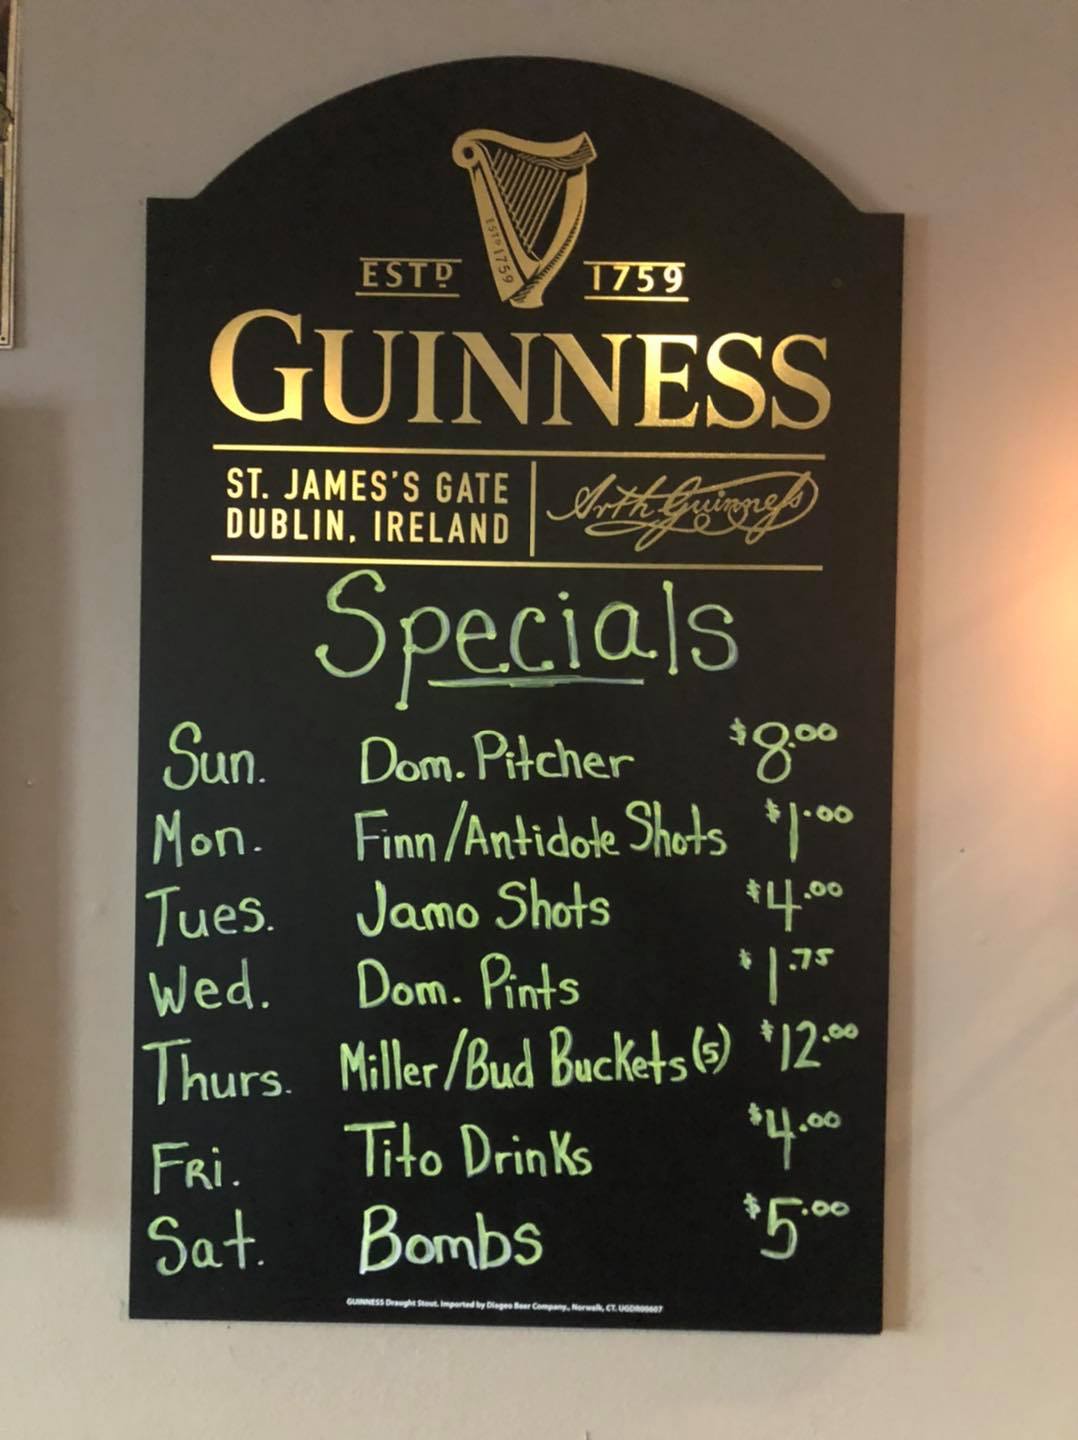 ESTD 1759
ESTD 1759
GUINNESS
ST. JAMES'S GATE
DUBLIN, IRELAND
Arth Guinness
Specials
Sun. Dom. Pitcher $8.00
Mon. Finn/Antidote Shots $1.00
Tues. Jamo Shots $4.00
Wed. Dom. Pints $1.75
Thurs. Miller/Bud Buckets (5) $12.00
FRi. Tito Drinks $4.00
Sat. Bombs $5.00
GUINNESS Draught Stout. Imported by Diageo Beer Company., Norwalk, CT.